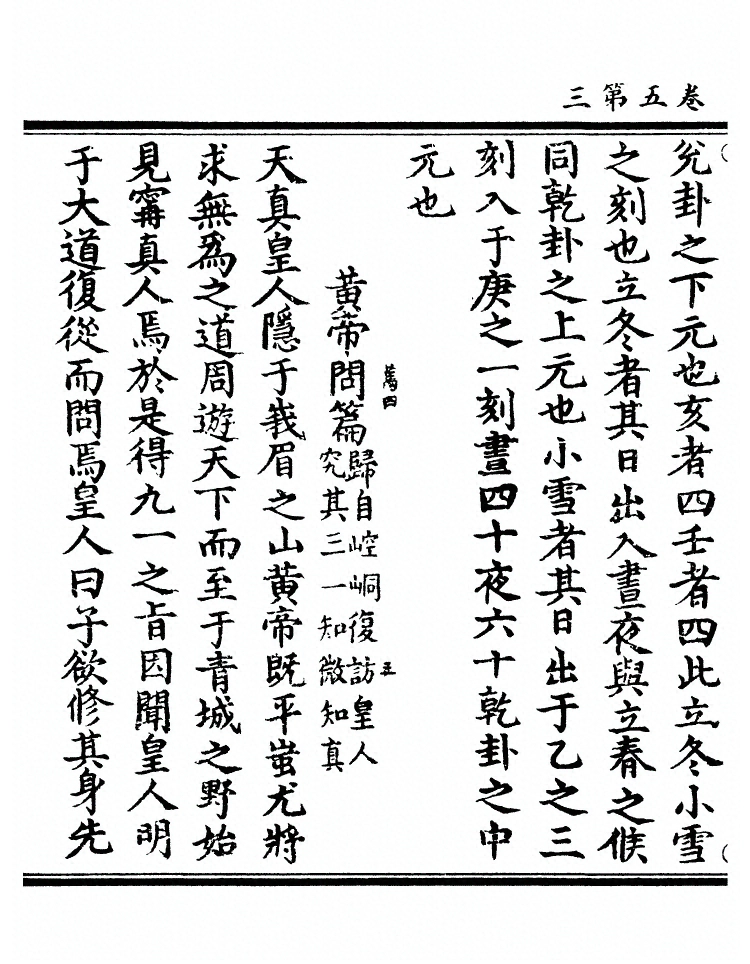 卷五第三
兊卦之下元也亥者四壬者四此立冬小雪
之刻也立冬者其日出入晝夜與立春之候
同乾卦之上元也小雪者其日出于乙之三
刻入于庚之一刻晝四十夜六十乾卦之中
元也
四
五
黄帝問篇
歸自崆峒復訪皇人
究其三一知微知真
天真皇人隱于峩眉之山黄帝既平蚩尤將
求無爲之道周遊天下而至于青城之野始
見甯真人焉於是得九一之旨因聞皇人明
于大道復從而問焉皇人曰子欲修其身先